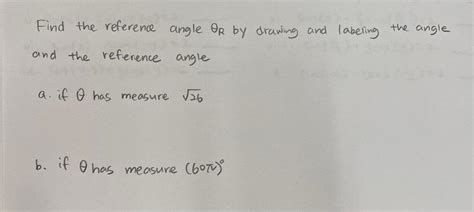 Find the reference angle θR by drawing and labeling the angle
and the reference angle
a. if θ has measure √26
b. if θ has measure (60π)°